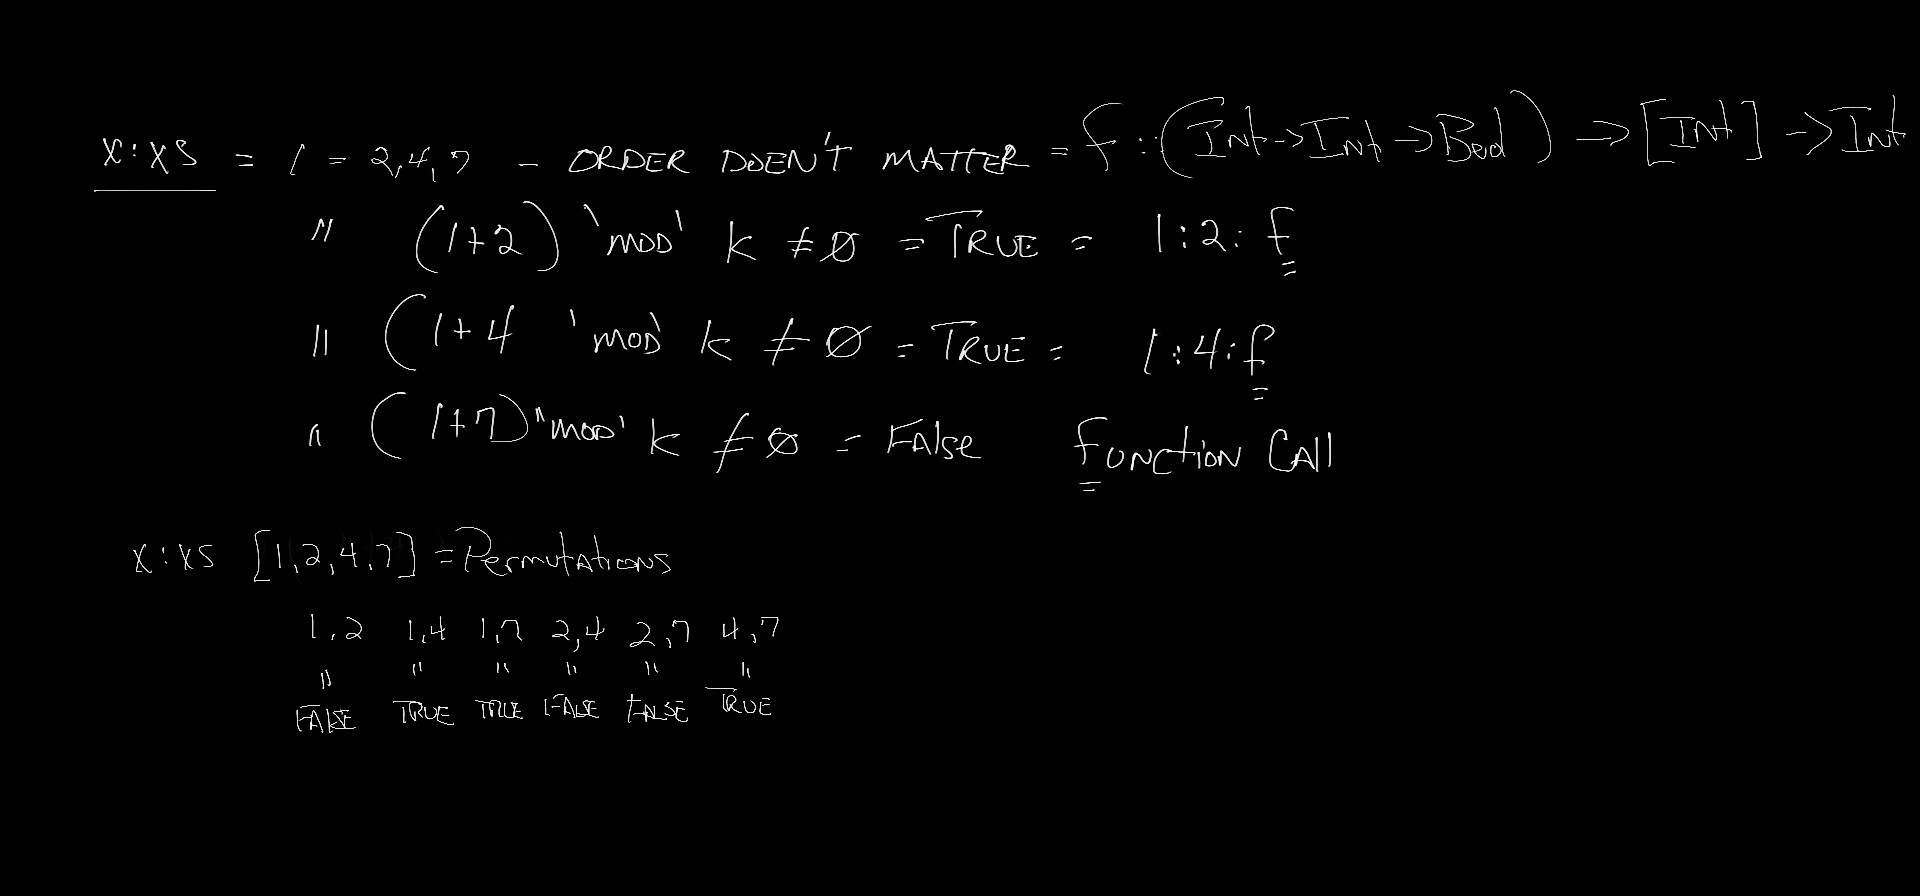 X:XS = 1 - 2,4,7 - ORDER DOEN'T MATTER = f :: (Int->Int->Bool) -> [Int] -> Int
" (1+2) 'MOD' k ≠ Ø = TRUE = 1:2:f
" (1+4 'MOD' k ≠ Ø = TRUE = 1:4:f
" (1+7) "MOD' k ≠ Ø = FAlse FUNCTION CAll
X:XS [1,2,4,7] = PermutAtions
1,2 1,4 1,7 2,4 2,7 4,7
" " " " " "
FALSE TRUE TRUE FALSE FALSE TRUE